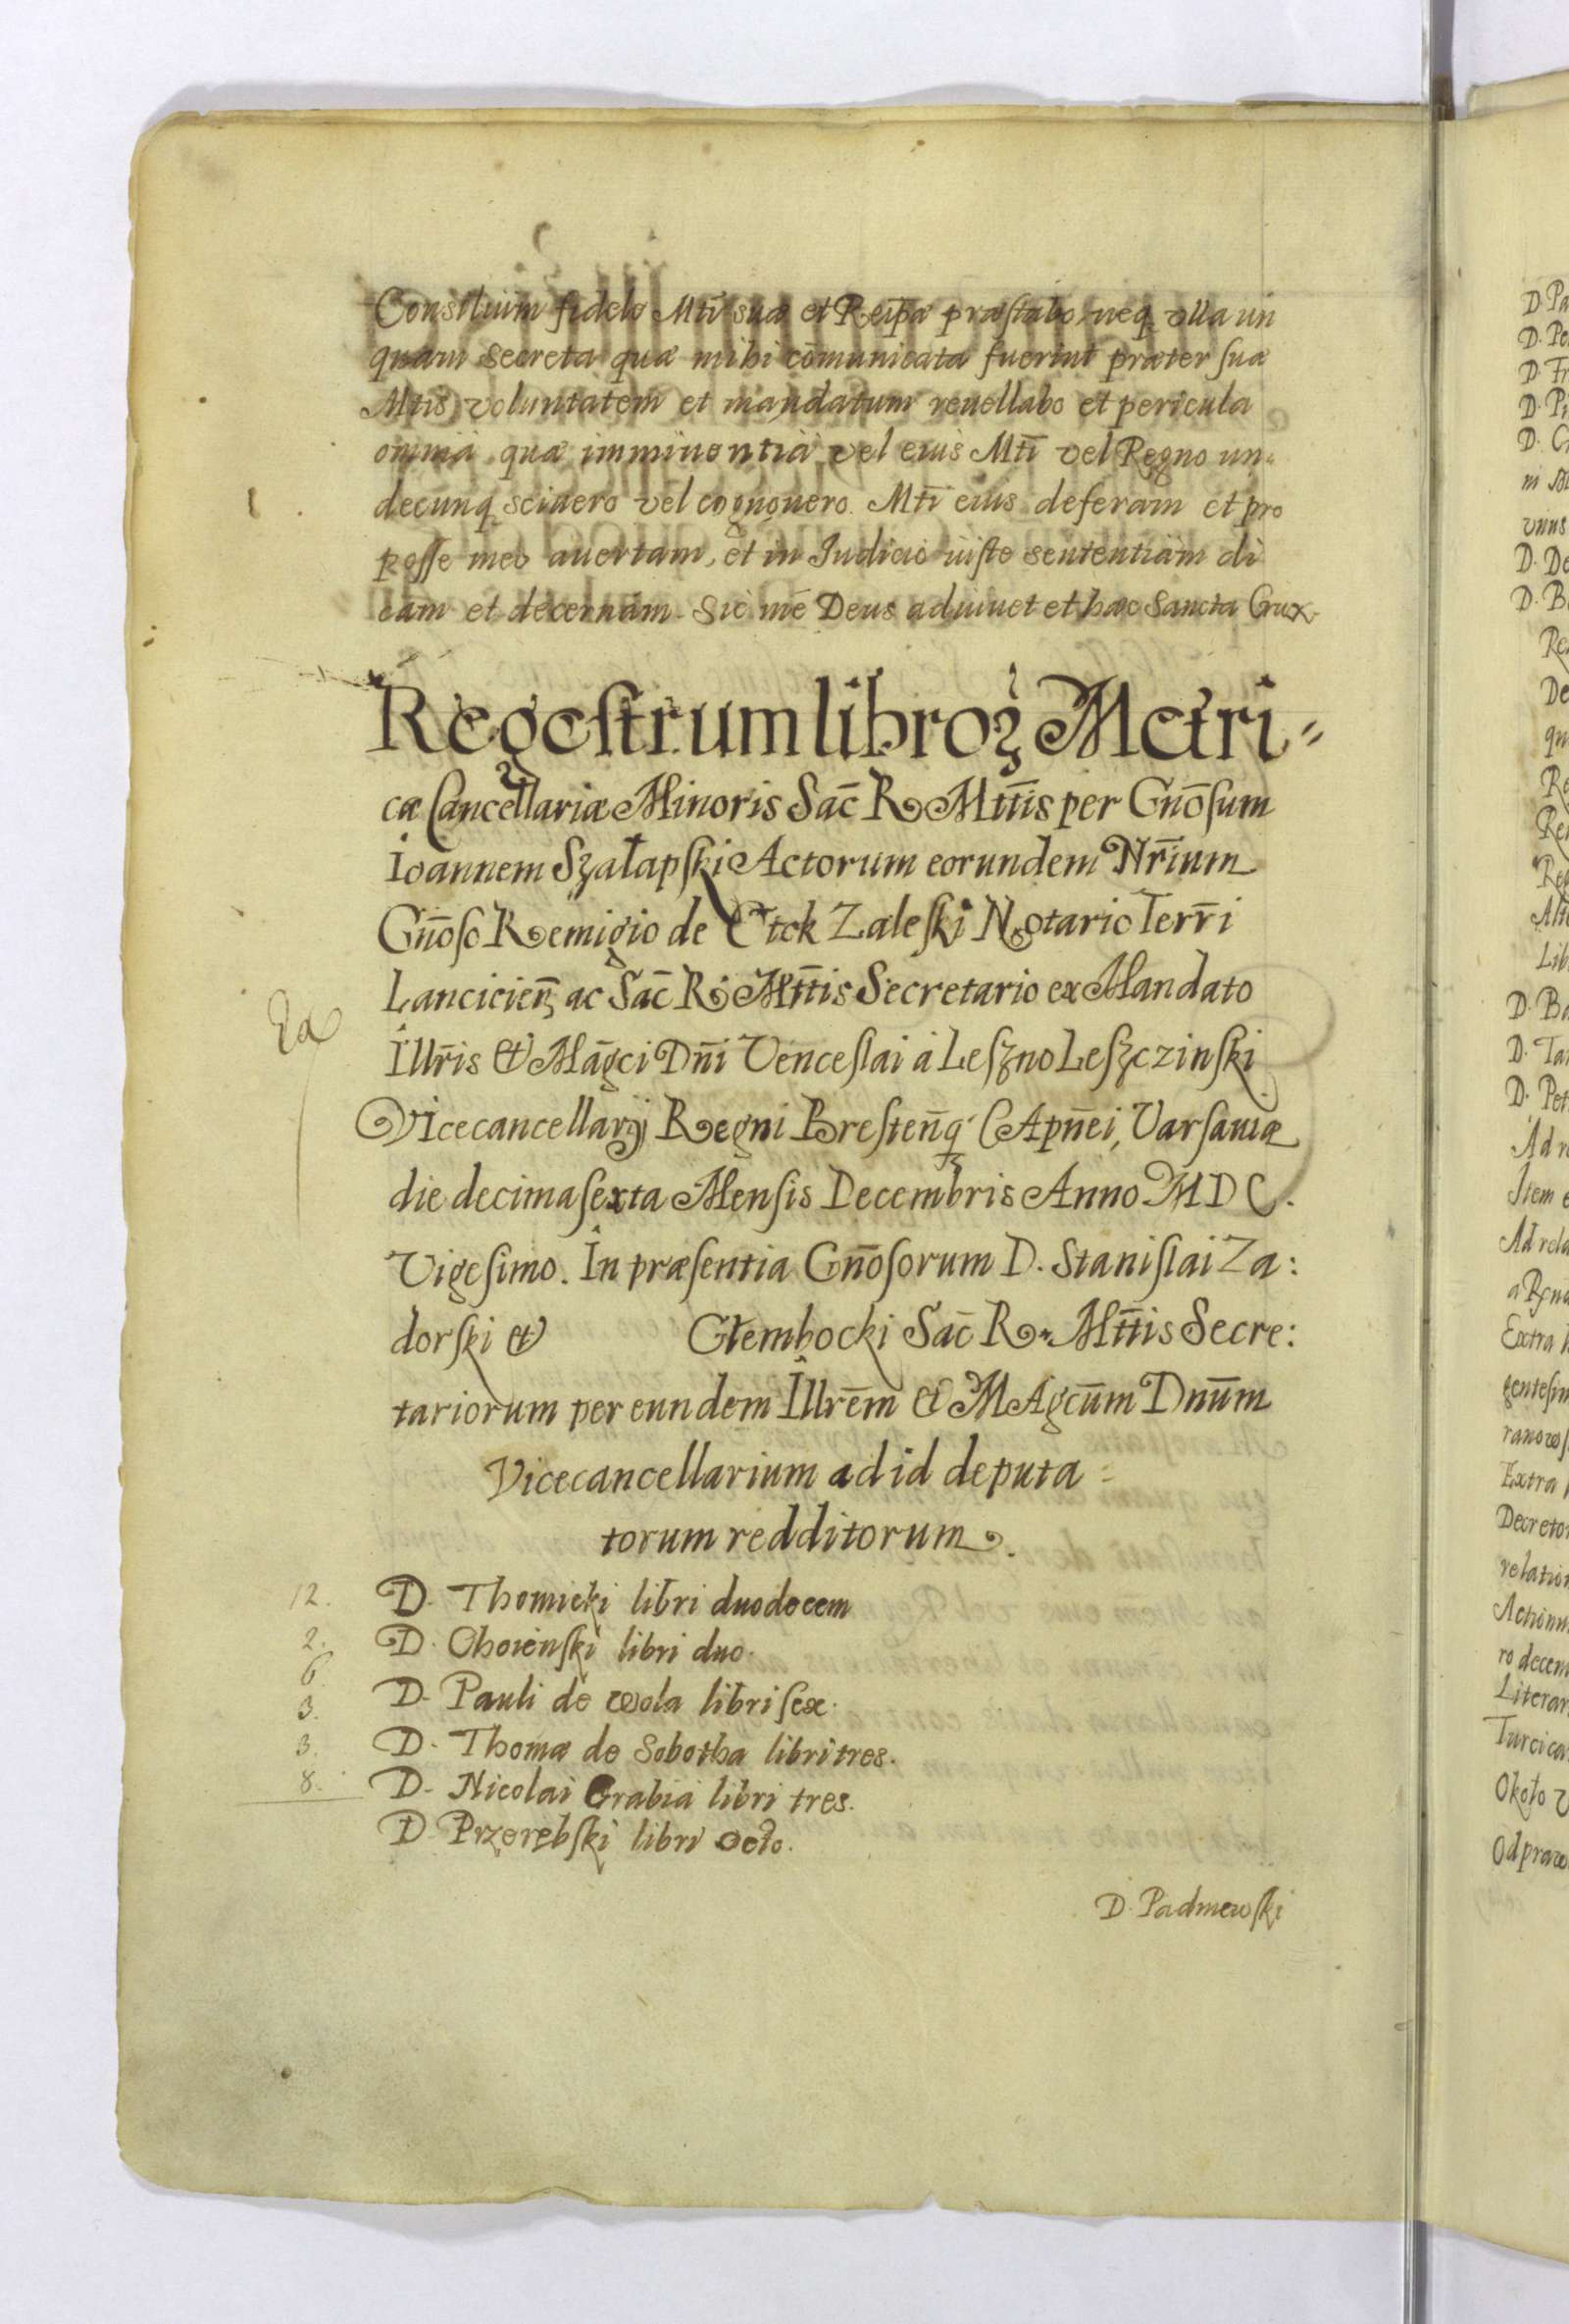 Consilium fidele Mti suæ et Reipæ præstabo, neq ulla un
quam secreta quæ mihi cõmunicata fuerint præter suæ
Mtis voluntatem et mandatum reuellabo et pericula
omnia quæ imminentia vel eius Mti vel Regno un=
decunq sciuero vel cognouero. Mti eius deferam et pro
posse meo auertam, et in Iudicio iuste sententiam di
cam et decernam. Sic me Deus adiuuet et hæc Sancta Crux
Regestrum libroꝝ Metri=
cæ Cancellariæ Minoris Sac̃ R Mttis per Gnõsum
Ioannem Szałapski Actorum eorundem Nr̃ium
Gnõso Remigio de Ctok Zaleski Notario Terr̃i
Lancicien̄ ac Sac̃ R Mttis Secretario ex Mandato
Illr̃is et Mãgci Dñi Venceslai a Leszno Leszczinski
Vicecancellarij Regni Bresteñq Capñei, Varsauiæ
die decima sexta Mensis Decembris Anno MDC.
Vigesimo. In præsentia Gnõsorum D. Stanislai Za:
dorski et Głembocki Sac̃ R. Mttis Secre:
tariorum per eundem Illrẽm et Magcũm Dnũm
Vicecancellarium ad id deputa=
torum redditorum.
12. D. Thomicki libri duodecem
2. D. Choienski libri duo.
6. D. Pauli de wola libri sex.
3. D. Thomæ de Sobotha libri tres.
3. D. Nicolai Grabia libri tres.
8. D Przerębski libri octo.
D. Padniewski
D. Pa
D. Pe
D. Fr
D. Pi
D. C
vnus
D. De
D. B
Re
De
qu
Re
Re
Re
Lib
D. Ba
D. Tar
D. Pet
Ad r
Item e
Ad rela
Extra
gentesim
ranows
Extra
Decreto
relation
Actionu
ro decem
Literar
Turcica
Około
Odpraw